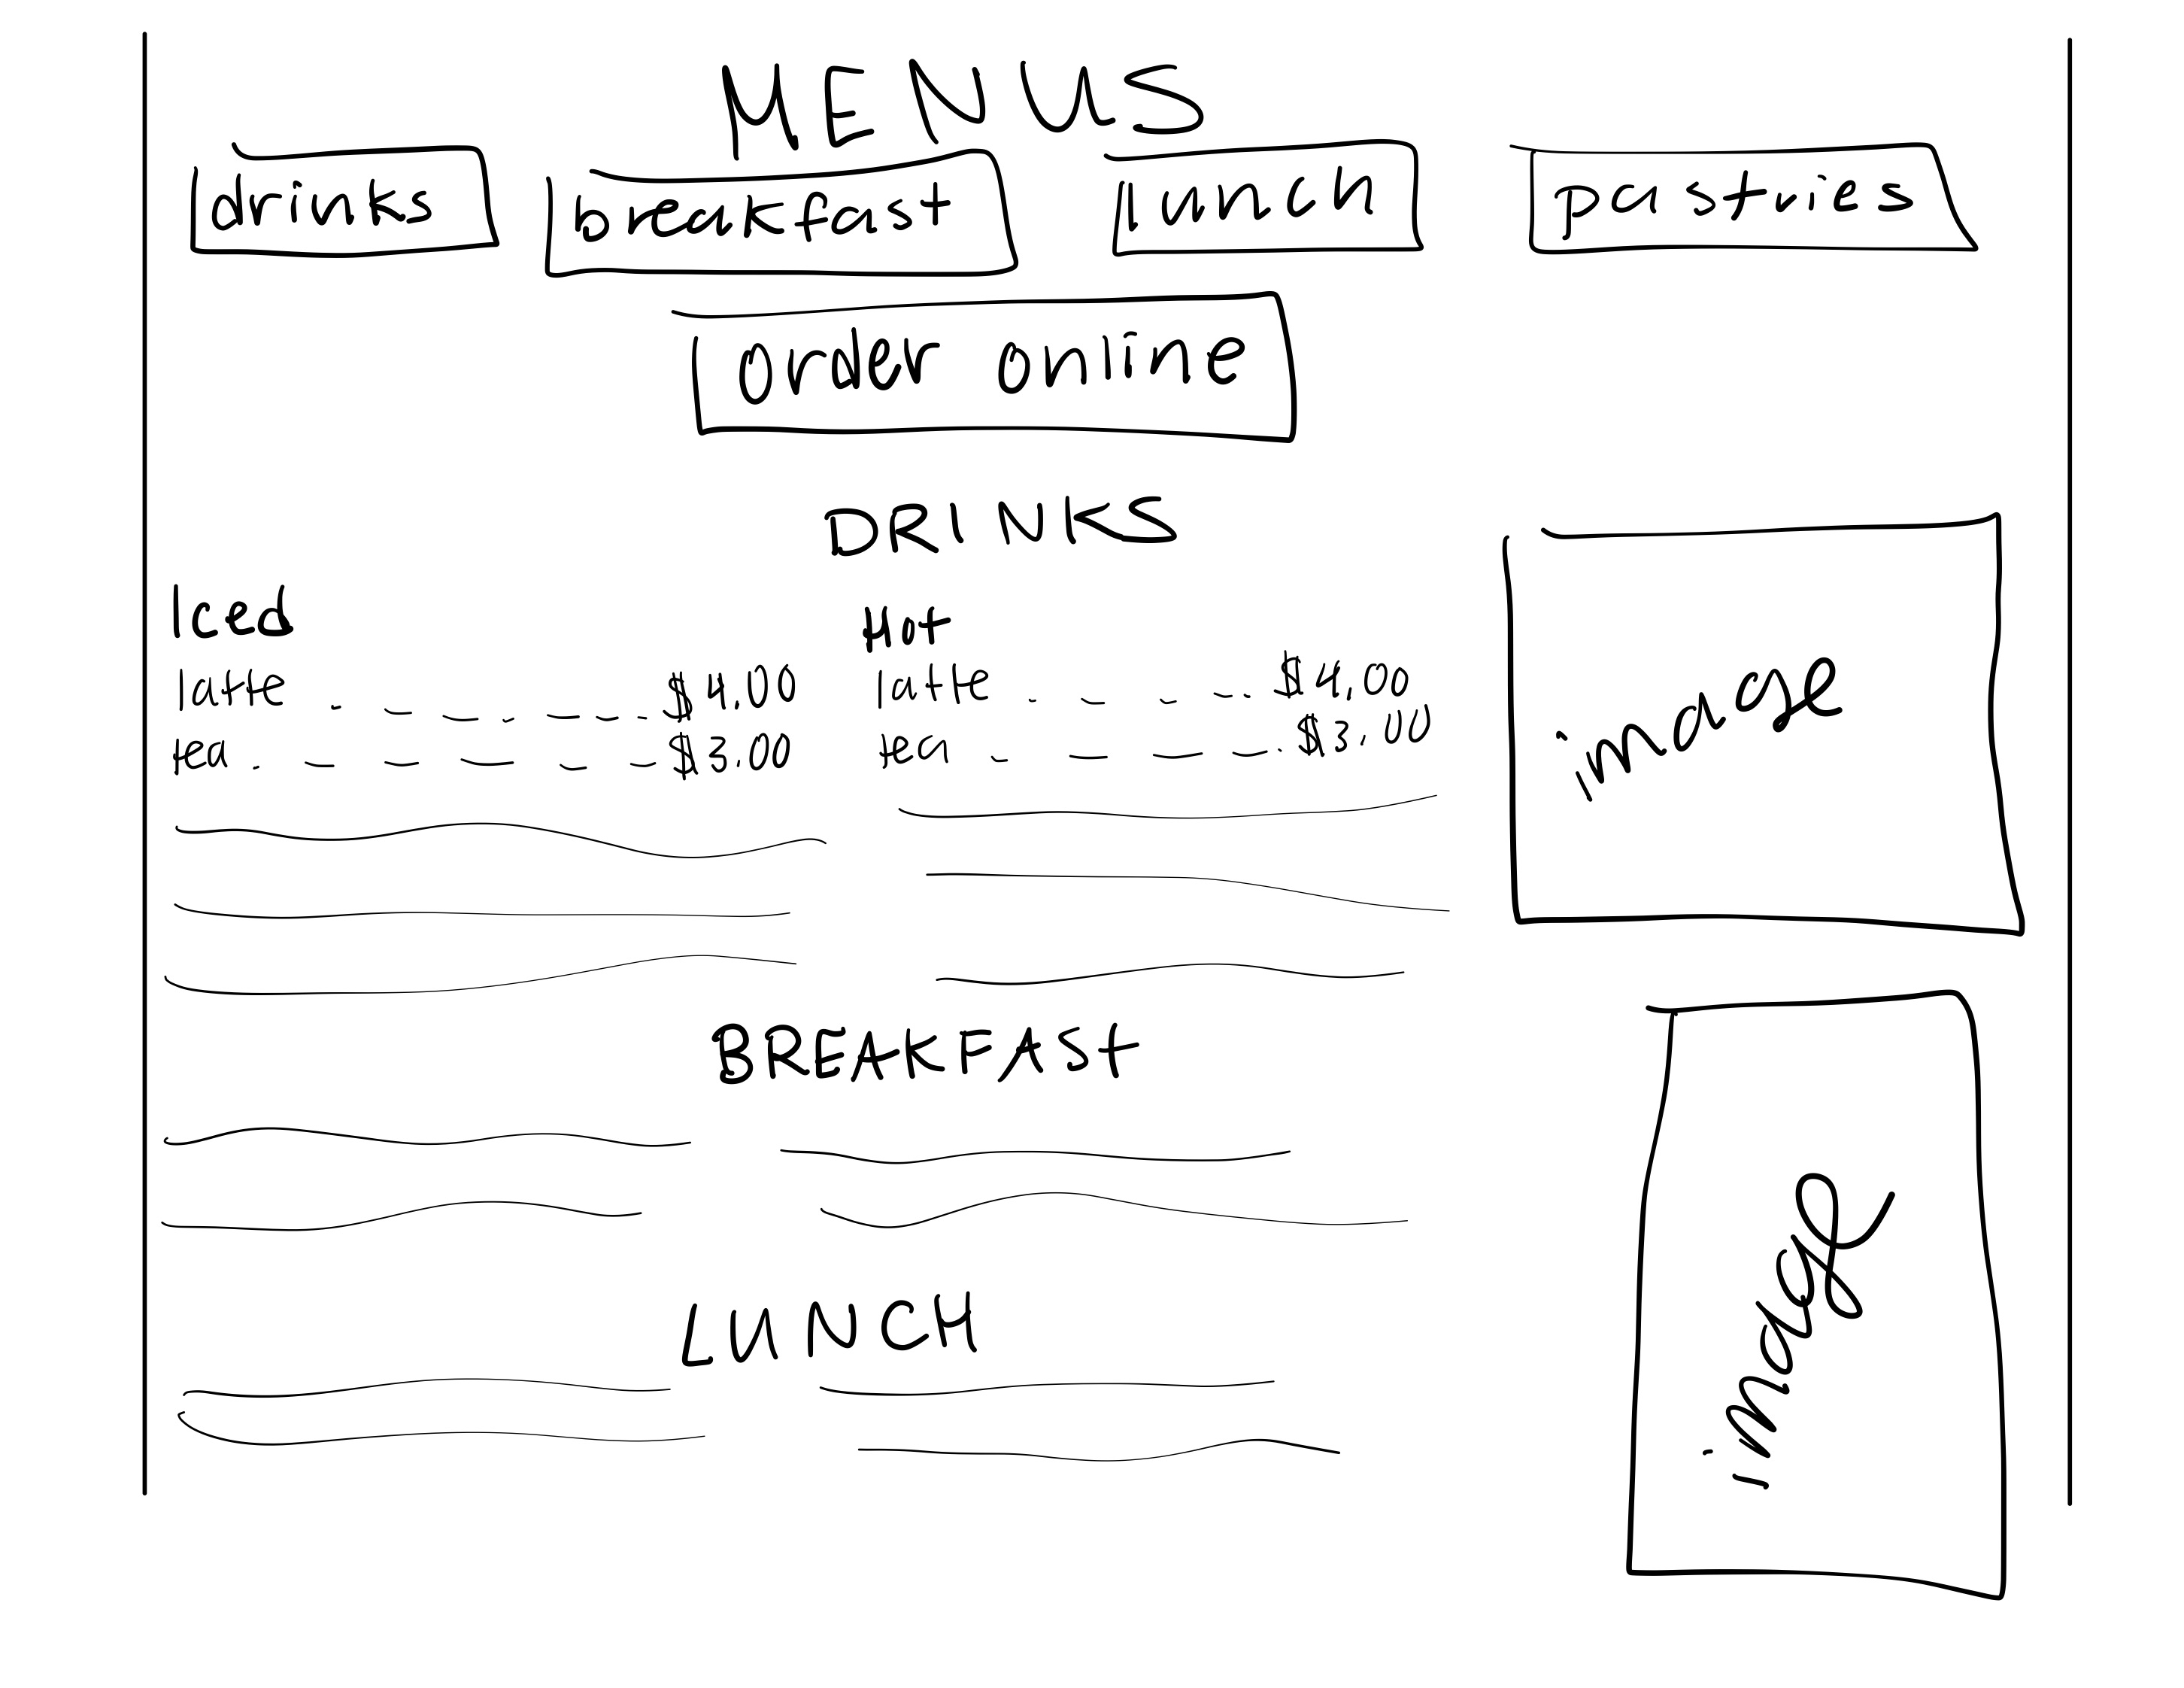 MENUS
drinks breakfast lunch pastries
Order online
DRINKS
Iced
latte $4.00
tea $3.00
Hot
latte $4.00
tea $3.00
image
BREAKFASt
LUNCH
image